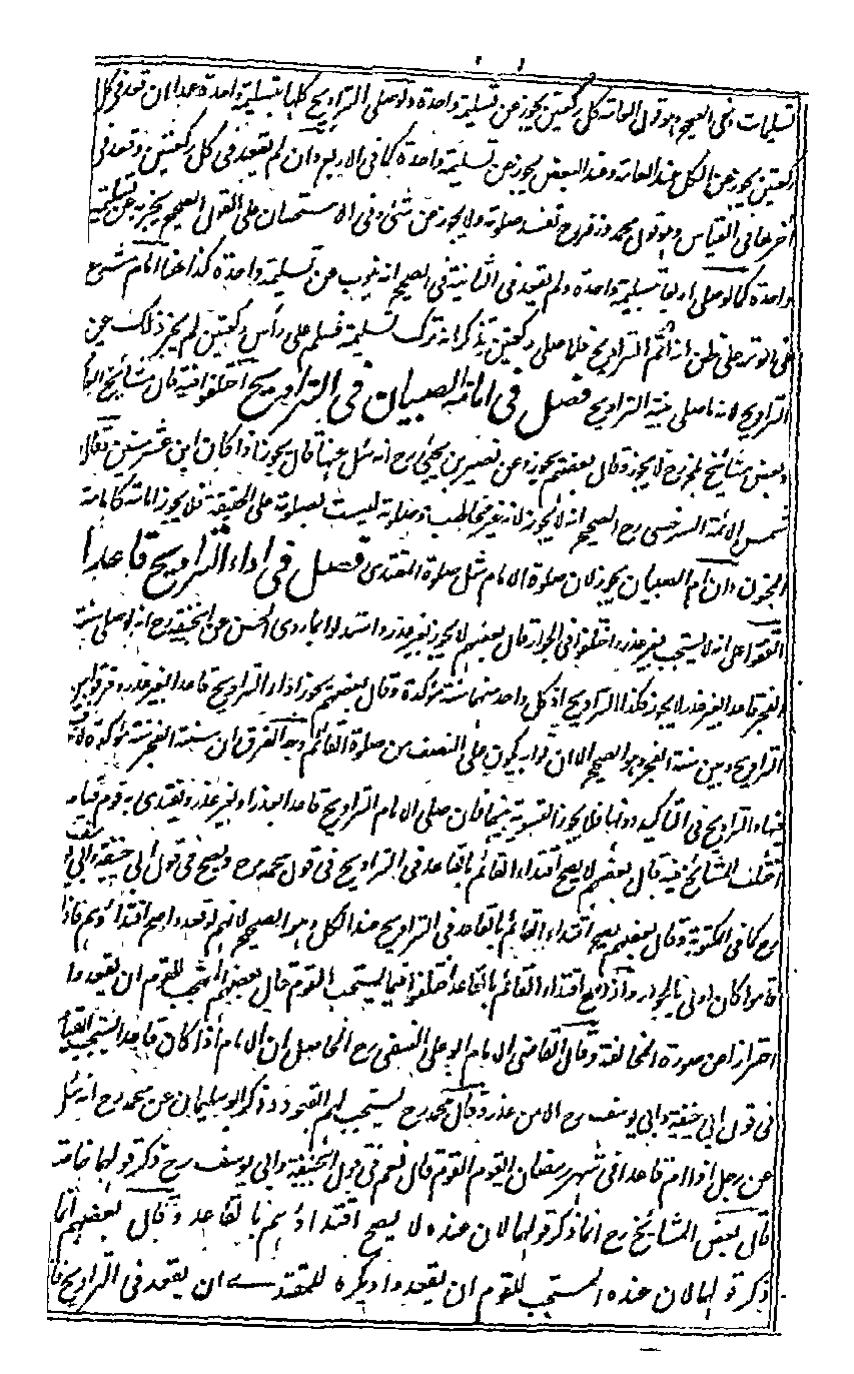 تسليمات وفي الصحيح وهو قول العامة كل ركعتين يجوز عن تسليمة واحدة ولو صلى التراويح كلها بتسليمة واحدة عمدا ان قعد في كل
ركعتين يجوز عن الكل عند العامة وعند البعض يجوز عن تسليمة واحدة كما في الاربع وان لم يقعد في كل ركعتين وقعد في
آخرها في القياس وهو قول محمد وزفر رح تفسد صلوته ولا يجوز عن شئ وفي الاستحسان على القول الصحيح يجزيه عن تسليمة
واحدة كما لو صلى اربعا بتسليمة واحدة ولم يقعد في الثانية في الصحيح انه ينوب عن تسليمة واحدة كذا هنا امام شرع
في الوتر على ظن انه اتم التراويح فلما صلى ركعتين تذكر انه ترك تسليمة فسلم على رأس ركعتين لم يجز ذلك عن
التراويح لانه ما صلى بنية التراويح فصل في امامة الصبيان في التراويح اختلفوا فيه قال مشائخ
وبعض مشائخ بلخ رح لا يجوز وقال بعضهم يجوز وعن نصير بن يحيى رح انه سئل عنها قال يجوز اذا كان ابن عشر سنين وقال
شمس الائمة السرخسي رح الصحيح انه لا يجوز لانه غير مخاطب وصلوته ليست بصلوة على الحقيقة فلا يجوز امامته كامامة
المجنون وان ام الصبيان يجوز لان صلوة الامام مثل صلوة المقتدى فصل في اداء التراويح قاعدا
اتفقوا على انه لا يستحب بغير عذر واختلفوا في الجواز قال بعضهم لا يجوز بغير عذر واستدلوا بما روى الحسن عن ابي حنيفة رح انه لو صلى سنة
الفجر قاعدا بغير عذر لا يجوز فكذا التراويح اذ كل واحد منهما سنة مؤكدة وقال بعضهم يجوز اداء التراويح قاعدا بغير عذر وفرقوا بين
التراويح وبين سنة الفجر وهو الصحيح الا ان ثوابه يكون على النصف من صلوة القائم وجه الفرق ان سنة الفجر سنة مؤكدة لا خلاف
فيها والتراويح في التأكيد دونها فلا يجوز التسوية بينهما فان صلى الامام التراويح قاعدا بعذر او بغير عذر واقتدى به قوم قيام
اختلف المشائخ فيه قال بعضهم لا يصح اقتداء القائم بالقاعد في التراويح في قول محمد رح ويصح في قول ابي حنيفة وابي يوسف
رح كما في المكتوبة وقال بعضهم يصح اقتداء القائم بالقاعد في التراويح عند الكل وهو الصحيح لانهم لو قعدوا صح اقتداؤهم فاذا
قاموا كان اولى بالجواز واذا صح اقتداء القائم بالقاعد اختلفوا فيما يستحب للقوم قال بعضهم المستحب للقوم ان يقعدوا
احترازا عن صورة المخالفة وقال القاضي الامام ابو علي النسفي رح الحاصل ان الامام اذا كان قاعدا يستحب القيام
في قول ابي حنيفة وابي يوسف رح الا من عذر وقال محمد رح يستحب لهم القعود وذكر ابو سليمان عن محمد رح انه سئل
عن رجل اذا ام قاعدا في شهر رمضان ايقوم القوم قال نعم في قول ابي حنيفة وابي يوسف رح ذكر قولهما خاصة
قال بعض المشائخ رح انما ذكر قولهما لان عنده لا يصح اقتداؤهم بالقاعد وقال بعضهم انما
ذكر قولهما لان عنده المستحب للقوم ان يقعدوا ويكره للمقتدے ان يقعد في التراويح